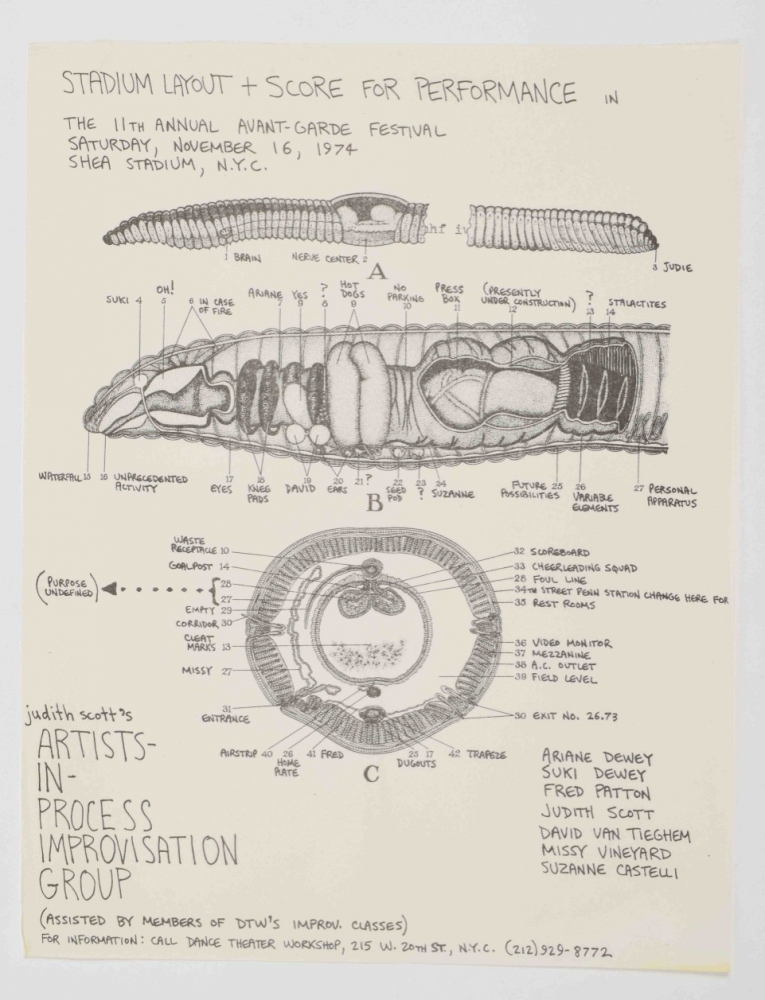 STADIUM LAYOUT + SCORE FOR PERFORMANCE IN
THE 11TH ANNUAL AVANT-GARDE FESTIVAL
SATURDAY, NOVEMBER 16, 1974
SHEA STADIUM, N.Y.C.
1 BRAIN
NERVE CENTER 2
3 JUDIE
A
SUKI 4
OH! 5
6 IN CASE OF FIRE
ARIANE 7
YES 9
? 8
HOT DOGS 9
NO PARKING 10
PRESS BOX 11
(PRESENTLY UNDER CONSTRUCTION) 12
? 13
STALACTITES 14
WATERFALL 15
16 UNPRECEDENTED ACTIVITY
17 EYES
18 KNEE PADS
19 DAVID
20 EARS
21 ?
22 SEED POD
23 ?
24 SUZANNE
FUTURE 25 POSSIBILITIES
26 VARIABLE ELEMENTS
27 PERSONAL APPARATUS
B
WASTE RECEPTACLE 10
GOALPOST 14
(PURPOSE UNDEFINED)
28
27
EMPTY 29
CORRIDOR 30
CLEAT MARKS 13
MISSY 27
31 ENTRANCE
AIRSTRIP 40
26 HOME PLATE
41 FRED
23 17 DUGOUTS
42 TRAPEZE
32 SCOREBOARD
33 CHEERLEADING SQUAD
28 FOUL LINE
34TH STREET PENN STATION CHANGE HERE FOR
35 REST ROOMS
36 VIDEO MONITOR
37 MEZZANINE
38 A.C. OUTLET
39 FIELD LEVEL
30 EXIT NO. 26.73
C
judith scott's
ARTISTS-
IN-
PROCESS
IMPROVISATION
GROUP
ARIANE DEWEY
SUKI DEWEY
FRED PATTON
JUDITH SCOTT
DAVID VAN TIEGHEM
MISSY VINEYARD
SUZANNE CASTELLI
(ASSISTED BY MEMBERS OF DTW'S IMPROV. CLASSES)
FOR INFORMATION: CALL DANCE THEATER WORKSHOP, 215 W. 20TH ST., N.Y.C. (212) 929-8772